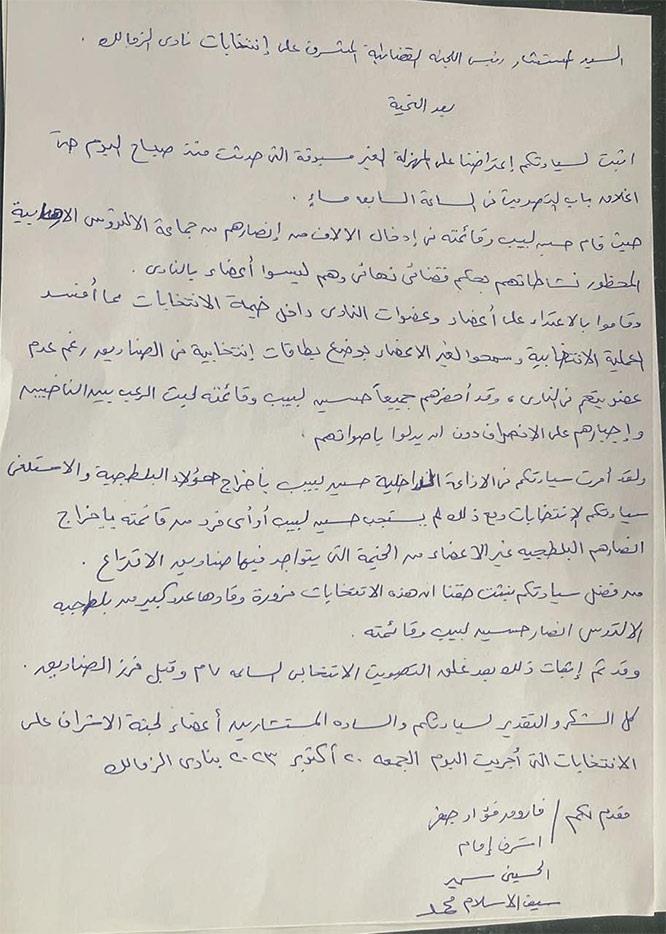 السيد المستشار رئيس اللجنة القضائية المشرف على إنتخابات نادى الزمالك .
بعد التحية
اثبت لسيادتكم إعتراضنا على المهزلة الغير مسبوقة التى حدثت منذ صباح اليوم حتى
اغلاق باب التصويت فى الساعة السابعه مساءً .
حيث قام حسين لبيب وقائمته فى إدخال الالاف من إنصارهم من جماعة الالتروس الارهابية
المحظور نشاطاتهم بحكم قضائى نهائى وهم ليسوا أعضاء بالنادى .
وقاموا بالاعتداء على أعضاء وعضوات النادى داخل خيمة الانتخابات مما أفسد
العملية الانتخابية وسمحوا لغير الاعضاء بوضع بطاقات إنتخابية فى الصناديق رغم عدم
عضويتهم فى النادى ، وقد أحضرهم جميعاً حسين لبيب وقائمته لبث الرعب بين الناخبين
وإجبارهم على الانصراف دون ان يدلوا باصواتهم .
ولقد أمرت سيادتكم فى الاذاعة الداخلية حسين لبيب بأخراج هؤلاء البلطجية والا ستلغى
سيادتكم الإنتخابات ومع ذلك لم يستجب حسين لبيب أو أى فرد من قائمته بإخراج
انصارهم البلطجيه غير الاعضاء من الخيمة التى يتواجد فيها صناديق الاقتراع .
من فضل سيادتكم نثبت حقنا ان هذه الانتخابات مزورة وقادها عدد كبير من بلطجيه
الالتدرس انصار حسين لبيب وقائمته .
وقد تم إثبات ذلك بعد غلق التصويت الانتخابى الساعه ٧م وقبل فرز الصناديق .
كل الشكر و التقدير لسيادتكم والساده المستشارين أعضاء لجنة الاشراف على
الانتخابات التى أجريت اليوم الجمعه ٢٠ أكتوبر ٢٠٢٣ بنادى الزمالك
مقدم لكم / فاروق فؤاد جعفر
اشرف إمام
الحسينى سمير
سيف الاسلام محمد